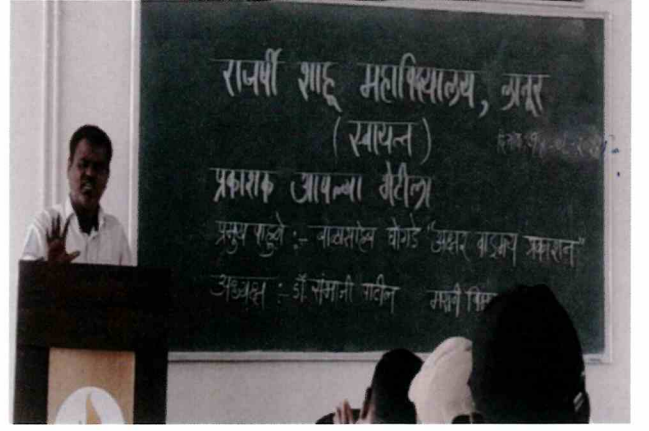 राजर्षी शाहू महाविद्यालय, लातूर
(स्वायत्त)
प्रकाशक आपल्या भेटीला
प्रमुख पाहुणे :- बाळासाहेब घोंगडे "अक्षर वाङ्मय प्रकाशन"
अध्यक्ष :- डॉ. संभाजी पाटील मराठी